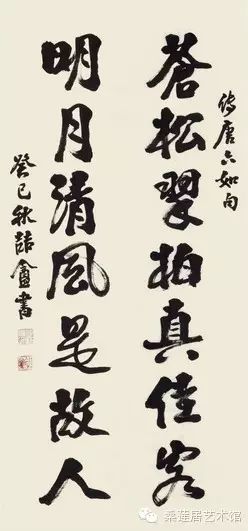 唐六如句
蒼松翠柏真佳客
明月清風是故人
癸巳秋喆盦書
桑莲居艺术馆